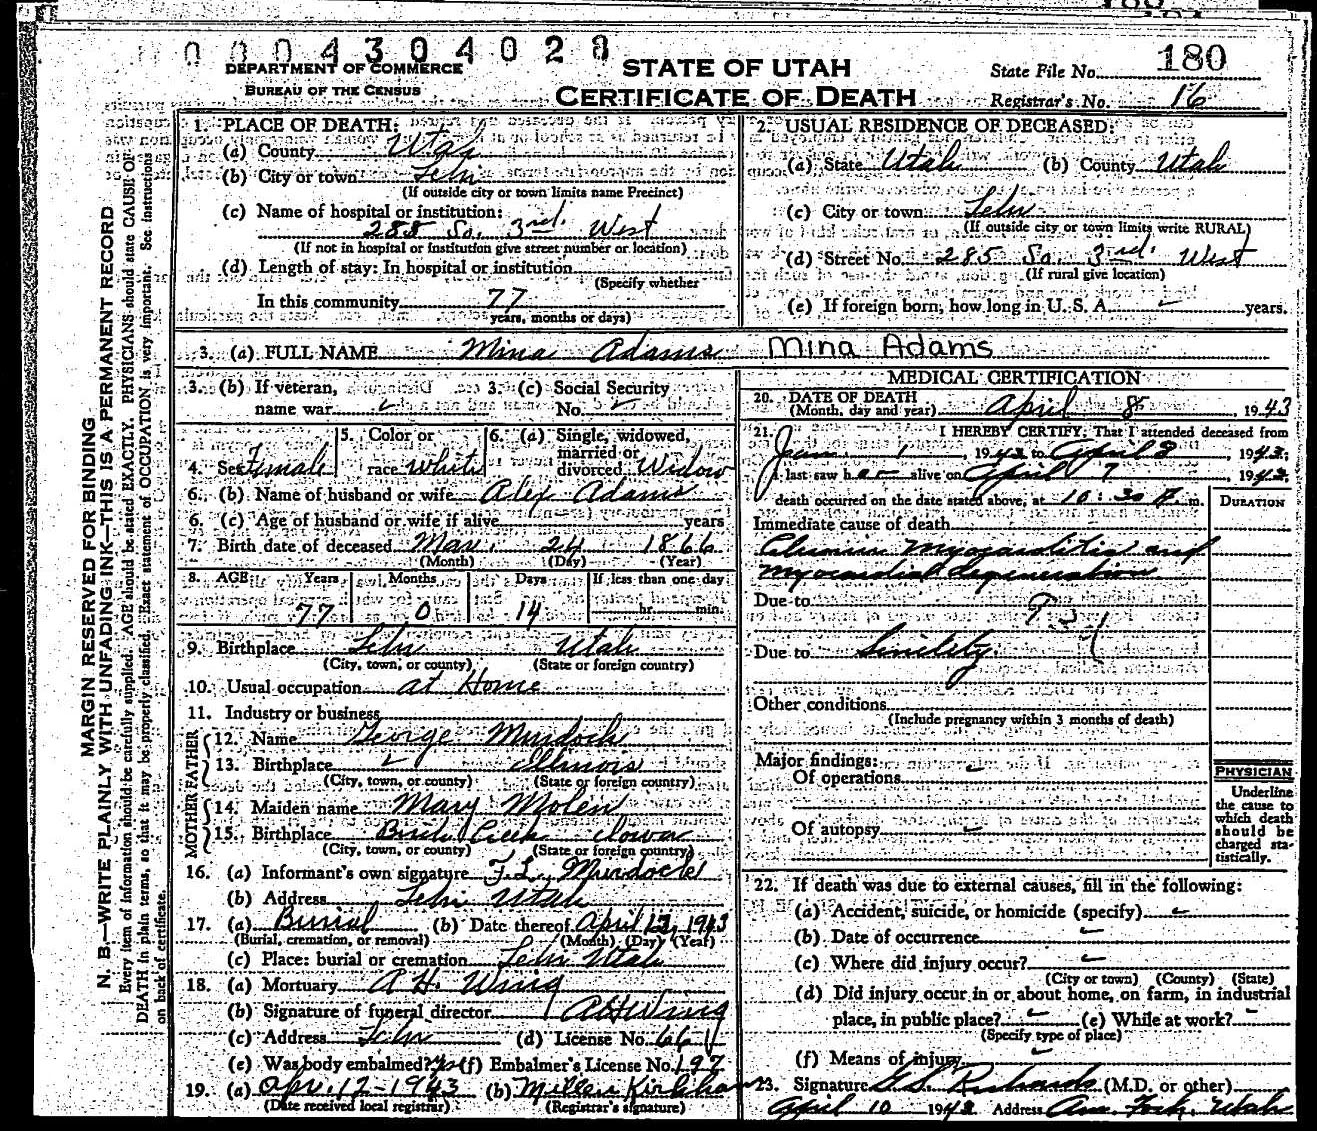 0004304028
DEPARTMENT OF COMMERCE
BUREAU OF THE CENSUS
STATE OF UTAH
CERTIFICATE OF DEATH
State File No. 180
Registrar's No. 16
MARGIN RESERVED FOR BINDING
N. B.—WRITE PLAINLY WITH UNFADING INK—THIS IS A PERMANENT RECORD
Every item of information should be carefully supplied. AGE should be stated EXACTLY. PHYSICIANS should state CAUSE OF
DEATH in plain terms, so that it may be properly classified. Exact statement of OCCUPATION is very important. See instructions
on back of certificate.
1. PLACE OF DEATH:
(a) County Utah
(b) City or town Lehi
(If outside city or town limits name Precinct)
(c) Name of hospital or institution:
285 So. 3rd. West
(If not in hospital or institution give street number or location)
(d) Length of stay: In hospital or institution
(Specify whether
In this community 77
years, months or days)
2. USUAL RESIDENCE OF DECEASED:
(a) State Utah (b) County Utah
(c) City or town Lehi
(If outside city or town limits write RURAL)
(d) Street No. 285 So. 3rd. West
(If rural give location)
(e) If foreign born, how long in U. S. A. years.
3. (a) FULL NAME Mina Adams Mina Adams
3. (b) If veteran, 3. (c) Social Security
name war No.
4. Sex Female 5. Color or race White 6. (a) Single, widowed, married or divorced Widow
6. (b) Name of husband or wife Alex Adams
6. (c) Age of husband or wife if alive years
7. Birth date of deceased Mar. 24 1866
(Month) (Day) (Year)
8. AGE Years Months Days If less than one day
77 0 14 hr. min.
9. Birthplace Lehi Utah
(City, town, or county) (State or foreign country)
10. Usual occupation at Home
11. Industry or business
FATHER
12. Name George Murdock
13. Birthplace Illinois
(City, town, or county) (State or foreign country)
MOTHER
14. Maiden name Mary Molen
15. Birthplace Creek Iowa
(City, town, or county) (State or foreign country)
16. (a) Informant's own signature F. L. Murdock
(b) Address Lehi Utah
17. (a) Burial (b) Date thereof April 12, 1943
(Burial, cremation, or removal) (Month) (Day) (Year)
(c) Place: burial or cremation Lehi Utah
18. (a) Mortuary A H. Wing
(b) Signature of funeral director A H Wing
(c) Address Lehi (d) License No. 66
(e) Was body embalmed? yes (f) Embalmer's License No. 197
19. (a) Apr. 12-1943 (b) Kirkham
(Date received local registrar) (Registrar's signature)
MEDICAL CERTIFICATION
20. DATE OF DEATH
(Month, day and year) April 8, 1943
21. I HEREBY CERTIFY, That I attended deceased from
Jan. 1, 1943 to April 8, 1943;
I last saw her alive on April 7, 1943;
death occurred on the date stated above, at 10:30 m.
DURATION
Immediate cause of death
Chronic Myocarditis and
Myocardial degeneration
Due to
Due to Senility.
Other conditions
(Include pregnancy within 3 months of death)
Major findings:
Of operations
Of autopsy
PHYSICIAN
Underline
the cause to
which death
should be
charged sta-
tistically.
22. If death was due to external causes, fill in the following:
(a) Accident, suicide, or homicide (specify)
(b) Date of occurrence
(c) Where did injury occur?
(City or town) (County) (State)
(d) Did injury occur in or about home, on farm, in industrial
place, in public place? (e) While at work?
(Specify type of place)
(f) Means of injury
23. Signature Richards (M.D. or other)
April 10 1943 Address Am. Fork, Utah